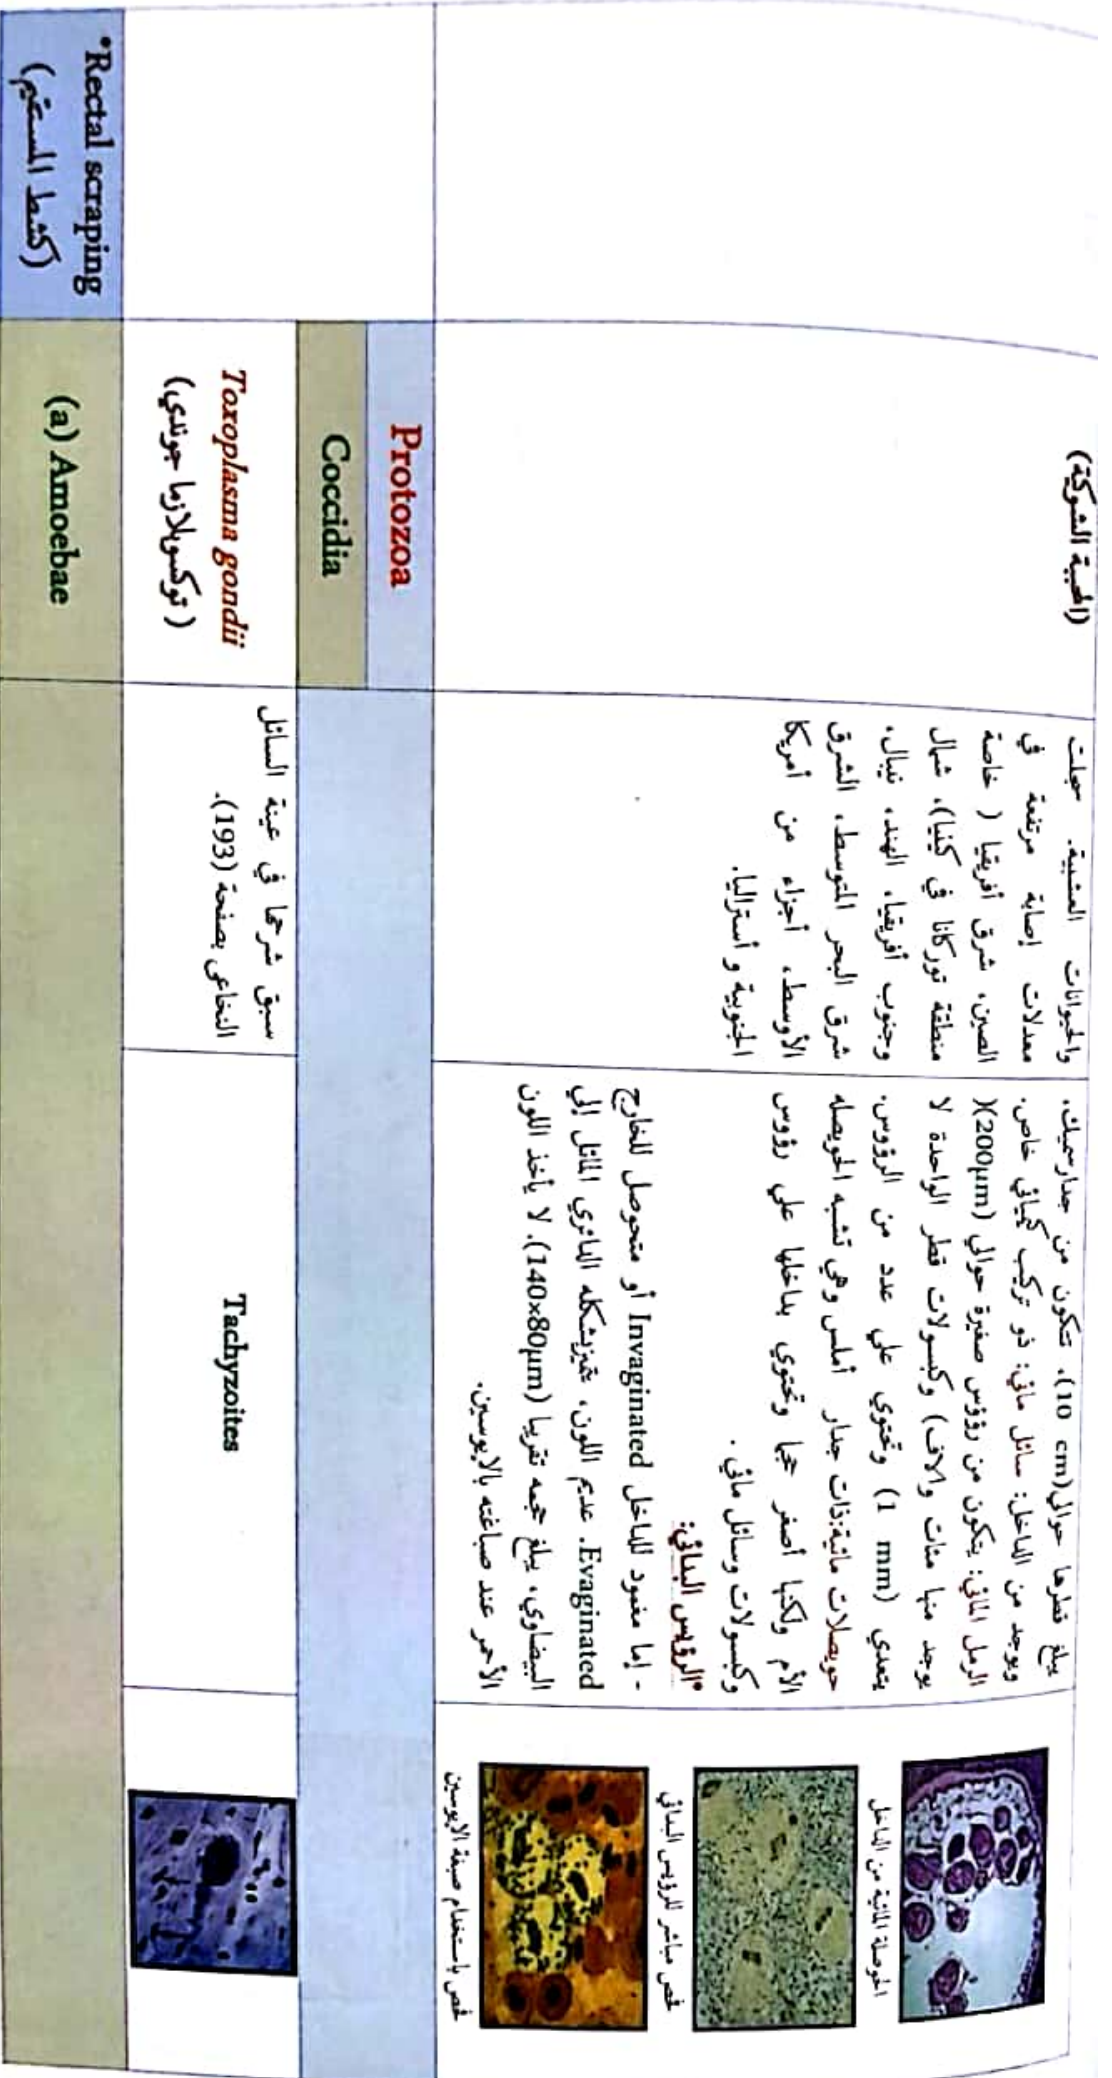 (الحبيبة الشوكية)
والحيوانات العشبية. سجلت
معدلات إصابة مرتفعة في
الصين، شرق أفريقيا ( خاصة
منطقة توركانا في كينيا)، شمال
وجنوب أفريقيا، الهند، نيبال،
شرق البحر المتوسط، الشرق
الأوسط، أجزاء من أمريكا
الجنوبية و أستراليا.
يبلغ قطرها حوالي(10 cm)، تتكون من جدار سميك،
ويوجد من الداخل: سائل مائي: ذو تركيب كيميائي خاص.
الرمل المائي: يتكون من رؤوس صغيرة حوالي (200µm)(
يوجد منها مئات والاف) وكبسولات قطر الواحدة لا
يتعدي (1 mm) وتحتوي علي عدد من الرؤوس.
حويصلات مائية:ذات جدار أملس وهي تشبه الحويصله
الأم ولكنها أصغر حجما وتحتوي بداخلها علي رؤوس
وكبسولات وسائل مائي .
*الرؤيس البدائي:
- إما مغمود للداخل Invaginated أو متحوصل للخارج
Evaginated. عديم اللون، يتميزبشكله الدائري المائل إلي
البيضاوي، يبلغ حجمه تقريبا (140x80µm)، لا يأخذ اللون
الأحمر عند صباغته بالايوسين.
الحوصلة المائية من الداخل
فحص مباشر للرؤيس البدائي
فحص باستخدام صبغة الايوسين
Protozoa
Coccidia
Toxoplasma gondii
(توكسوبلازما جوندي)
سبق شرحها في عينة السائل
النخاعى بصفحة (193).
Tachyzoites
*Rectal scraping
(كشط المستقيم)
(a) Amoebae